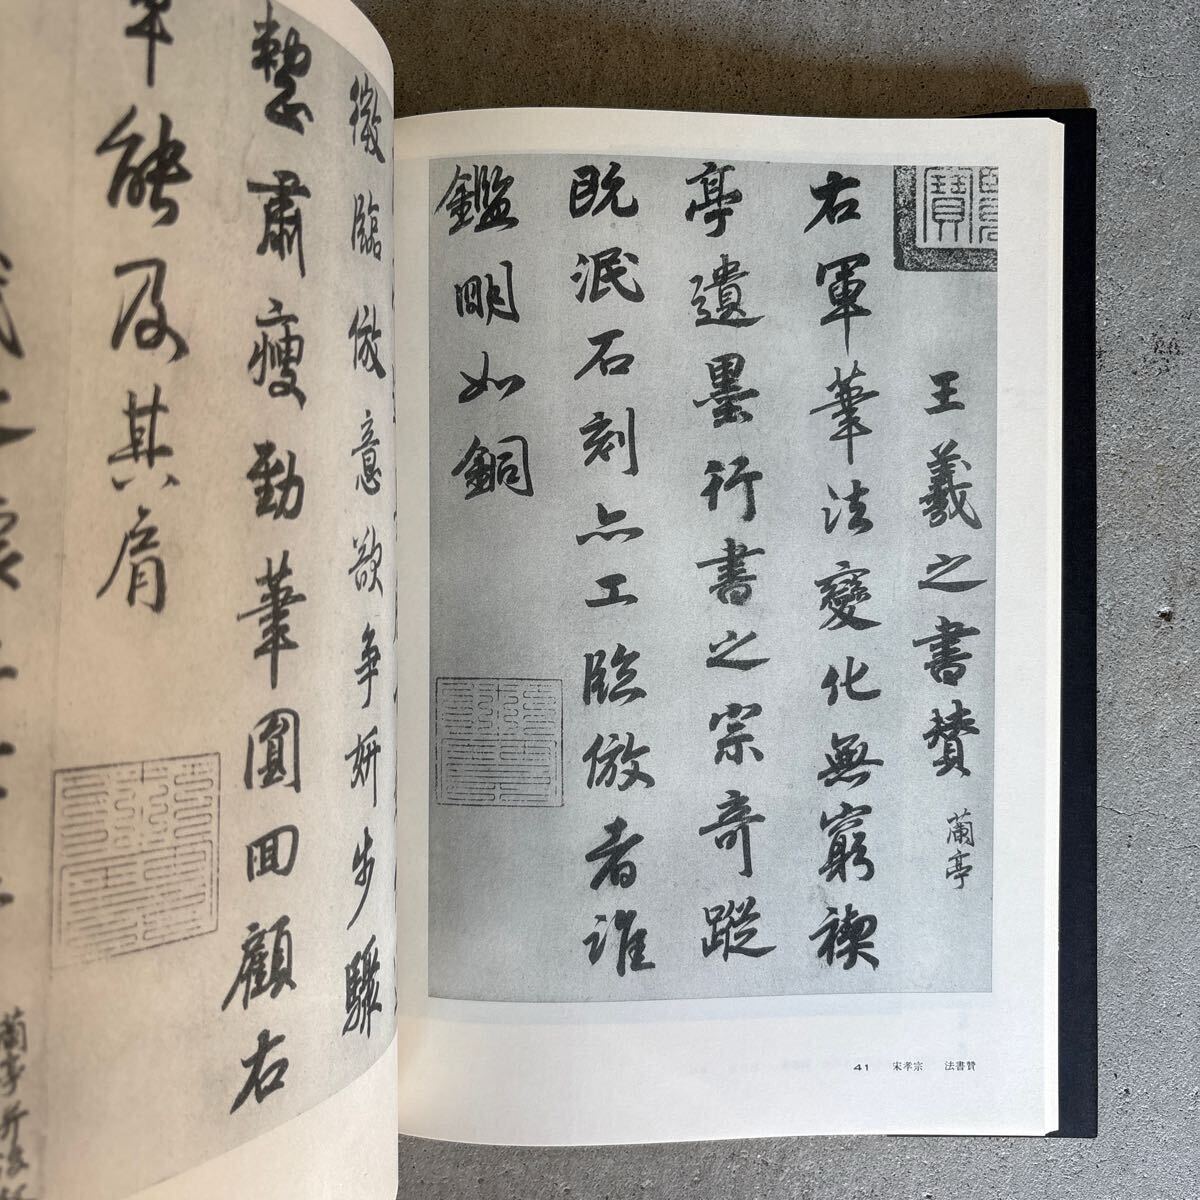 王羲之書賛 蘭亭
右軍筆法變化無窮禊
亭遺墨行書之宗奇蹤
既泯石刻亦工臨倣者誰
鑑明如銅
41 宋孝宗 法書贊
徽臨倣意欲爭妍步驟
整肅瘦勁筆圓回顧右
軍能及其肩